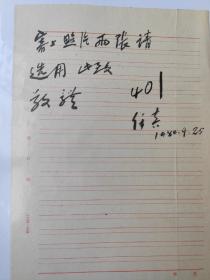 寄上照片两张请
选用 此致
敬礼
401
任真
1980.9.25